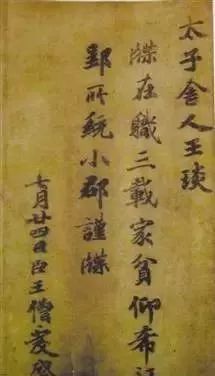 太子舍人王琰
牒在職三載家貧仰希
郢所統小郡謹牒
七月廿四日臣王僧虔啓